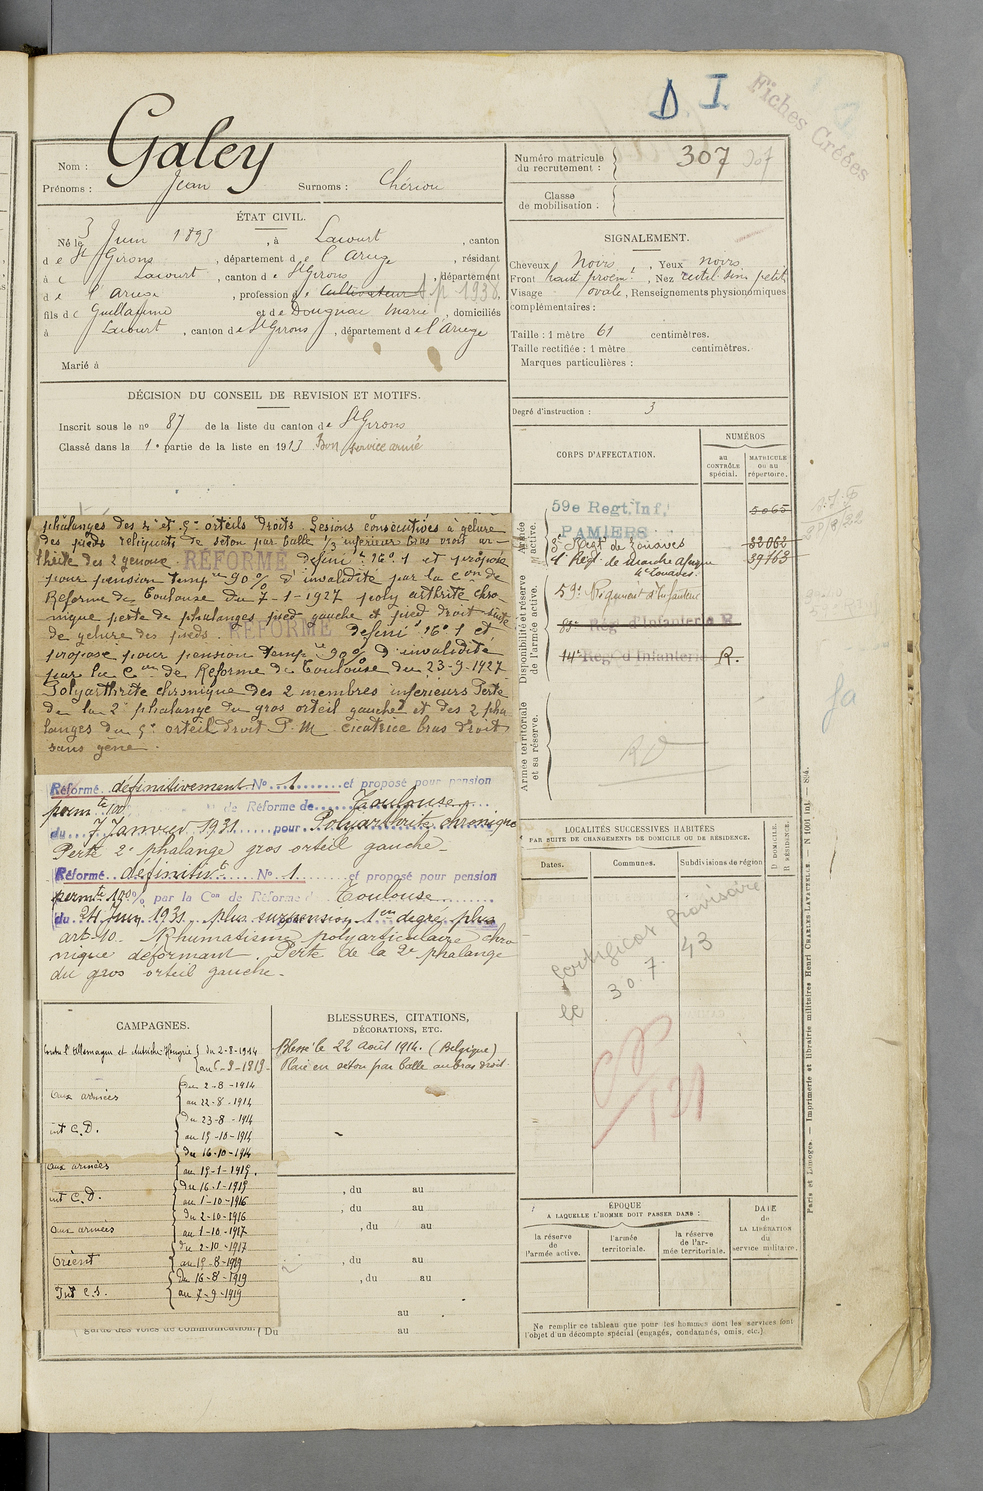 D I
Fiches Créées
Nom : Galey
Prénoms : Jean Surnoms : Chérion
ÉTAT CIVIL.
Né le 3 Juin 1893, à Lacourt, canton
de St Girons, département de l'Ariège, résidant
à Lacourt, canton de St Girons, département
de l'Ariège, profession de Cultivateur
fils de Guillaume et de Dougnac Marie, domiciliés
à Lacourt, canton de St Girons, département de l'Ariège
Marié à
DÉCISION DU CONSEIL DE REVISION ET MOTIFS.
Inscrit sous le no 87 de la liste du canton de St Girons
Classé dans la 1e partie de la liste en 1913 Bon service armé
phalanges des 4e et 5e orteils droits. Lésions consécutives à gelure
des pieds reliquats de seton par balle 1/3 inférieur bras droit ar-
thrite des 2 genoux. RÉFORMÉ défini t no 1 et proposé
pour pension temp re 90% d'invalidité par la Con de
Réforme de Toulouse du 7-1-1927 poly arthrite chro-
nique perte de phalanges pied gauche et pied droit suite
de gelure des pieds. RÉFORMÉ défini t no 1 et
proposé pour pension temp re 90% d'invalidité
par la Con de Réforme de Toulouse du 23-9-1927
Polyarthrite chronique des 2 membres inférieurs Perte
de la 2e phalange du gros orteil gauche et des 2 pha
langes du 5e orteil droit P.M. cicatrice bras droit
sans gêne.
Réformé définitivement No 1 et proposé pour pension
permte 100 de Réforme de Toulouse
du 7 Janvier 1931 pour Polyarthrite chronique
Perte 2e phalange gros orteil gauche-
Réformé définitivt No 1 et proposé pour pension
permte 100% par la Con de Réforme Toulouse
du 24 Juin 1931 plus suspension 1er degré plus
art. 10. Rhumatisme polyarticulaire chro
nique déformant. Perte de la 2e phalange
du gros orteil gauche-
CAMPAGNES.
Contre l'Allemagne et Autriche-Hongrie { du 2-8-1914
au 6-9-1919-
aux armées { du 2-8-1914
au 22-8-1914
int C.D. { du 23-8-1914
au 15-10-1914
aux armées { du 16-10-1914
au 15-1-1915.
int C.D. { du 16-1-1915
au 1-10-1916
aux armées { du 2-10-1916
au 1-10-1917
Orient { du 2-10-1917
au 15-8-1919
Int C.S. { du 16-8-1919
au 7-9-1919
garde des voies de communication. (Du au
BLESSURES, CITATIONS,
DÉCORATIONS, ETC.
Blessé le 22 Août 1914. (Belgique)
Plaie en séton par balle au bras droit.
, du au
, du au
, du au
, du au
, du au
au
au
Numéro matricule
du recrutement : } 307 307
Classe
de mobilisation :
SIGNALEMENT.
Cheveux Noirs, Yeux noirs
Front haut proém t, Nez rectil. sin. petit
Visage ovale, Renseignements physionomiques
complémentaires :
Taille : 1 mètre 61 centimètres.
Taille rectifiée : 1 mètre centimètres.
Marques particulières :
Degré d'instruction : 3
CORPS D'AFFECTATION.
NUMÉROS
AU CONTRÔLE spécial.
MATRICULE OU AU répertoire.
Armée active.
59e Regt. Inf. 5065
PAMIERS
3e Regt de Zouaves 32062
4e Regt de marche Afrique 39763
4e Zouaves
Disponibilité et réserve de l'armée active.
59e Régiment d'Infanterie
83e Rég d'Infanterie R
14e Reg d'Infanterie R.
Armée territoriale et sa réserve.
LOCALITÉS SUCCESSIVES HABITÉES
PAR SUITE DE CHANGEMENTS DE DOMICILE OU DE RÉSIDENCE.
Dates.
Communes.
Subdivisions de région
D. DOMICILE.
R. RÉSIDENCE.
Certificat Provisoire
le 30.7.43
ÉPOQUE
A LAQUELLE L'HOMME DOIT PASSER DANS :
la réserve de l'armée active.
l'armée territoriale.
la réserve de l'armée territoriale.
DATE de LA LIBÉRATION du service militaire.
Ne remplir ce tableau que pour les hommes dont les services font
l'objet d'un décompte spécial (engagés, condamnés, omis, etc.)
Paris et Limoges. — Imprimerie et librairie militaires Henri CHARLES-LAVAUZELLE. — N 1001 int. — 894.